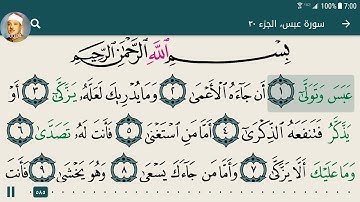 7:00
سورة عبس، الجزء ٣٠
بِسْمِ ٱللَّهِ ٱلرَّحْمَٰنِ ٱلرَّحِيمِ
عَبَسَ وَتَوَلَّىٰٓ ١ أَن جَآءَهُ ٱلْأَعْمَىٰ ٢ وَمَا يُدْرِيكَ لَعَلَّهُۥ يَزَّكَّىٰٓ ٣ أَوْ
يَذَّكَّرُ فَتَنفَعَهُ ٱلذِّكْرَىٰٓ ٤ أَمَّا مَنِ ٱسْتَغْنَىٰ ٥ فَأَنتَ لَهُۥ تَصَدَّىٰ ٦
وَمَا عَلَيْكَ أَلَّا يَزَّكَّىٰ ٧ وَأَمَّا مَن جَآءَكَ يَسْعَىٰ ٨ وَهُوَ يَخْشَىٰ ٩ فَأَنتَ
٥٨٥